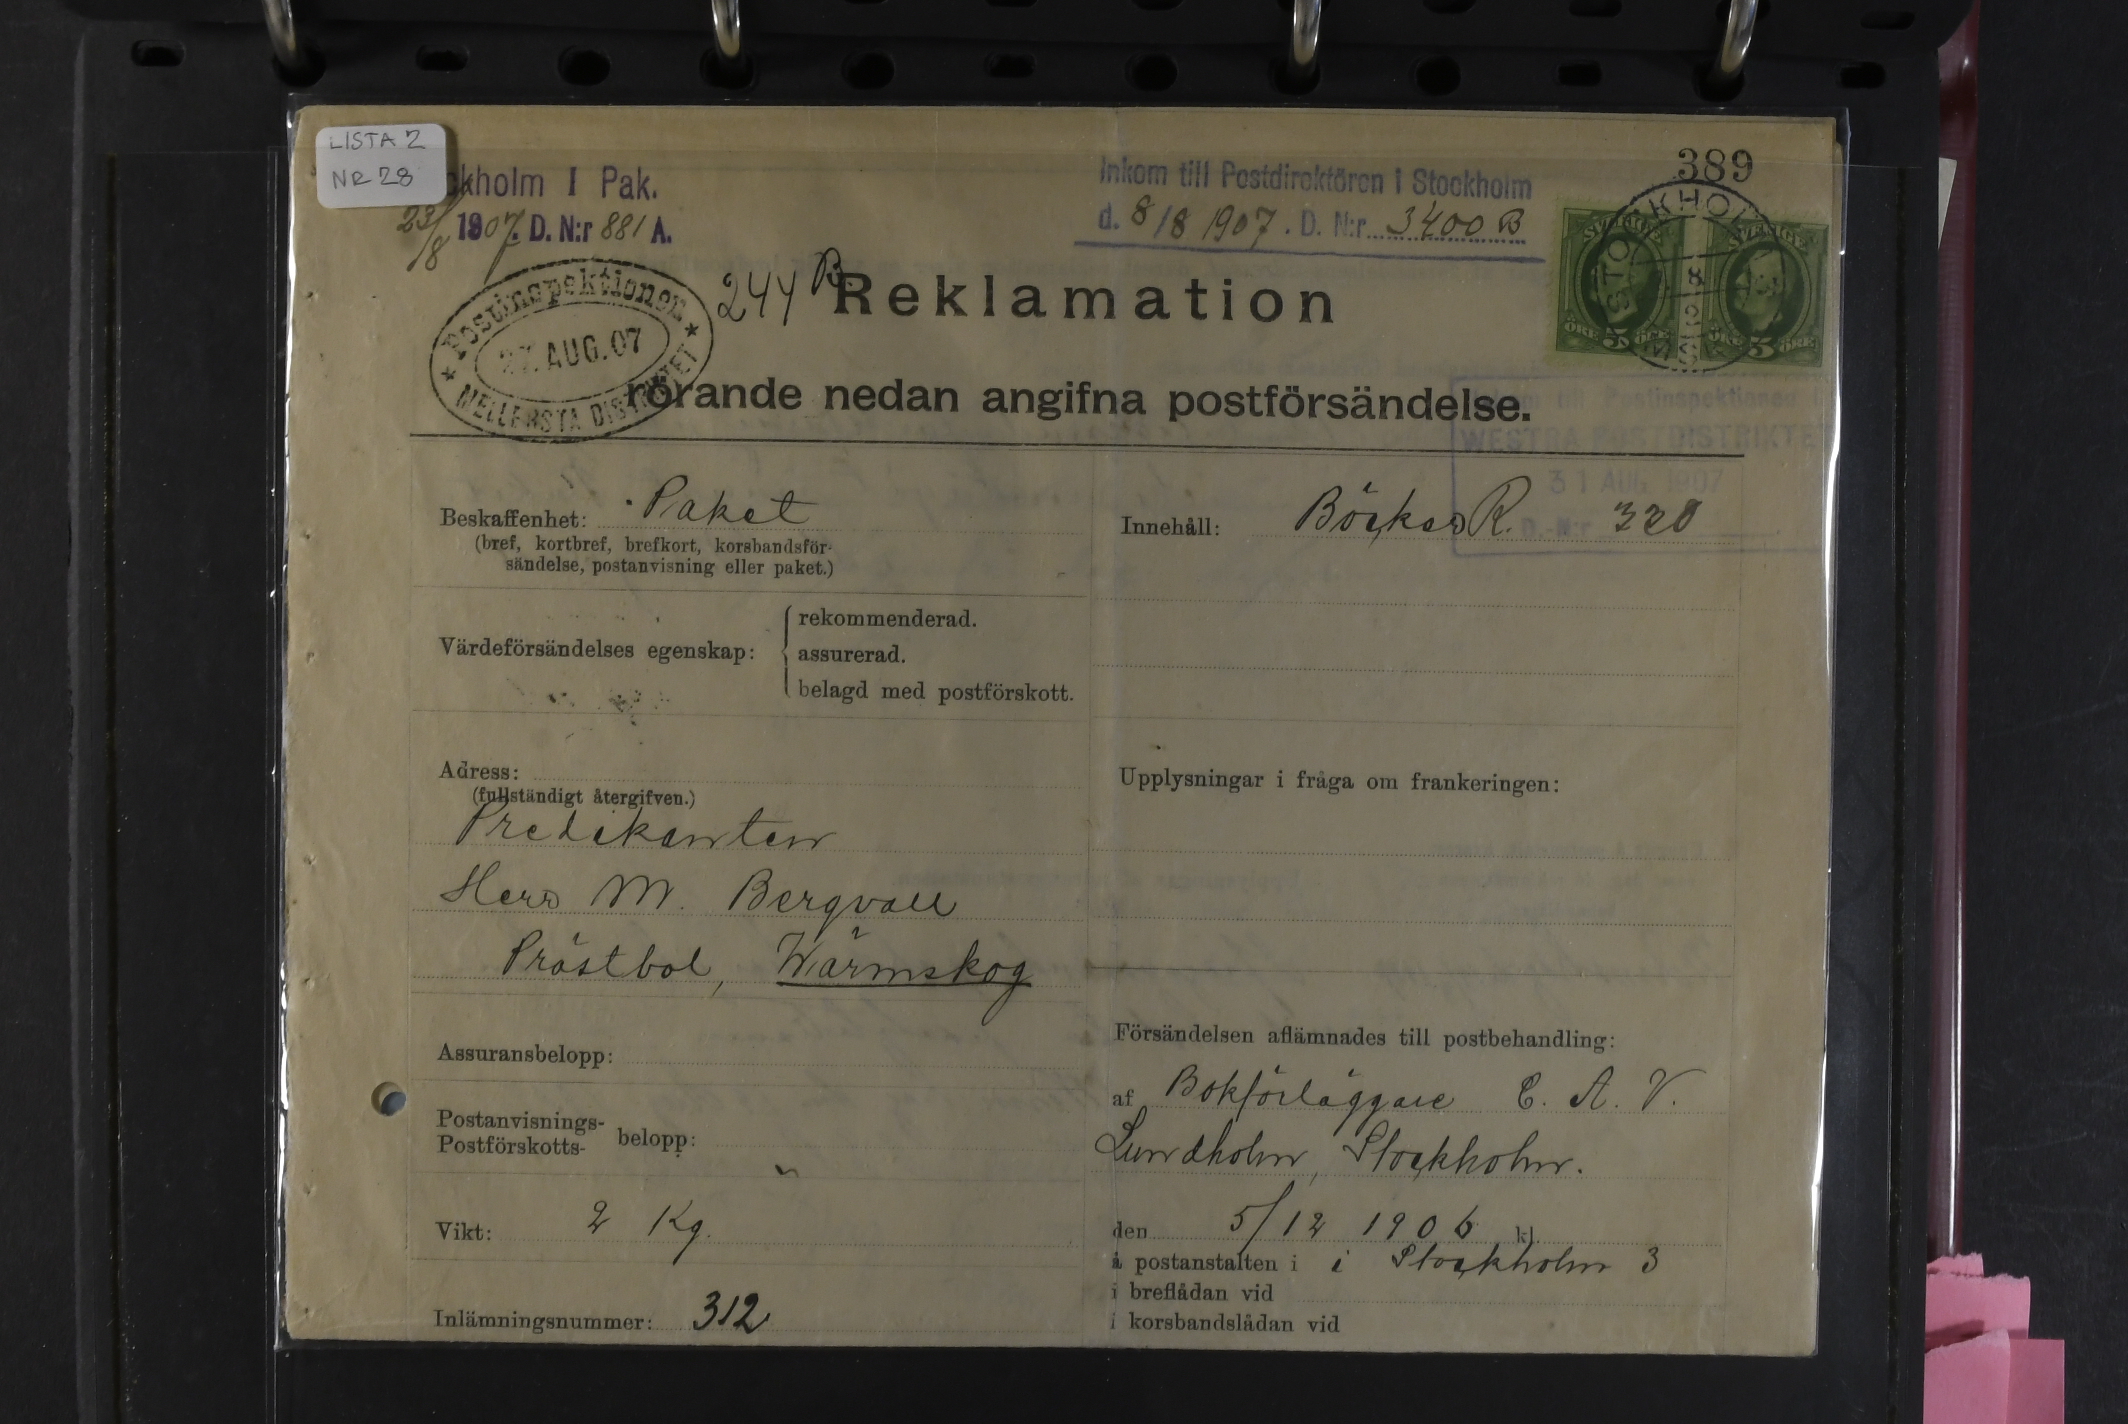 LISTA 2
NR 28
ckholm I Pak.
23/8 1907. D. N:r 881 A.
Inkom till Postdirektören i Stockholm
d. 8/8 1907. D. N:r 3400 B
389
STOCKHOLM
SVERIGE SVERIGE
ÖRE 5 ÖRE ÖRE 5 ÖRE
Postinspektionen
27. AUG. 07
MELLERSTA DISTRIKTET
244 B.
Reklamation
rörande nedan angifna postförsändelse.
till Postinspektionen i
WESTRA POSTDISTRIKTET
31 AUG 1907
D.-N:r
Beskaffenhet: Paket
(bref, kortbref, brefkort, korsbandsför-
sändelse, postanvisning eller paket.)
Innehåll: Böcker R. 320
Värdeförsändelses egenskap:
rekommenderad.
assurerad.
belagd med postförskott.
Adress:
(fullständigt återgifven.)
Predikanten
Herr M. Bergvall
Pråstbol, Wärmskog
Upplysningar i fråga om frankeringen:
Assuransbelopp:
Postanvisnings-
Postförskotts- belopp:
Vikt: 2 Kg.
Inlämningsnummer: 312
Försändelsen aflämnades till postbehandling:
af Bokförläggare C. A. V.
Lundholm, Stockholm.
den 5/12 1906 kl.
å postanstalten i i Stockholm 3
i breflådan vid
i korsbandslådan vid